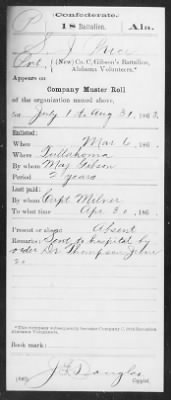 Confederate.
P 18 Battalion. Ala.
S. J. Price
Corp., (New) Co. C, Gibson's Battalion,
Alabama Volunteers.*
Appears on
Company Muster Roll
of the organization named above,
for July 1 to Aug 31, 1863.
Enlisted:
When Mar 6, 186 .
Where Tullahoma
By whom Maj Gibson
Period 2 years
Last paid:
By whom Capt. Milner
To what time Apr 30, 186 .
Present or absent Absent
Remarks: Sent to hospital by
order Dr Thompson June
20
*This company subsequently became Company
Book mark:
J L Douglas
(642) Copyist.